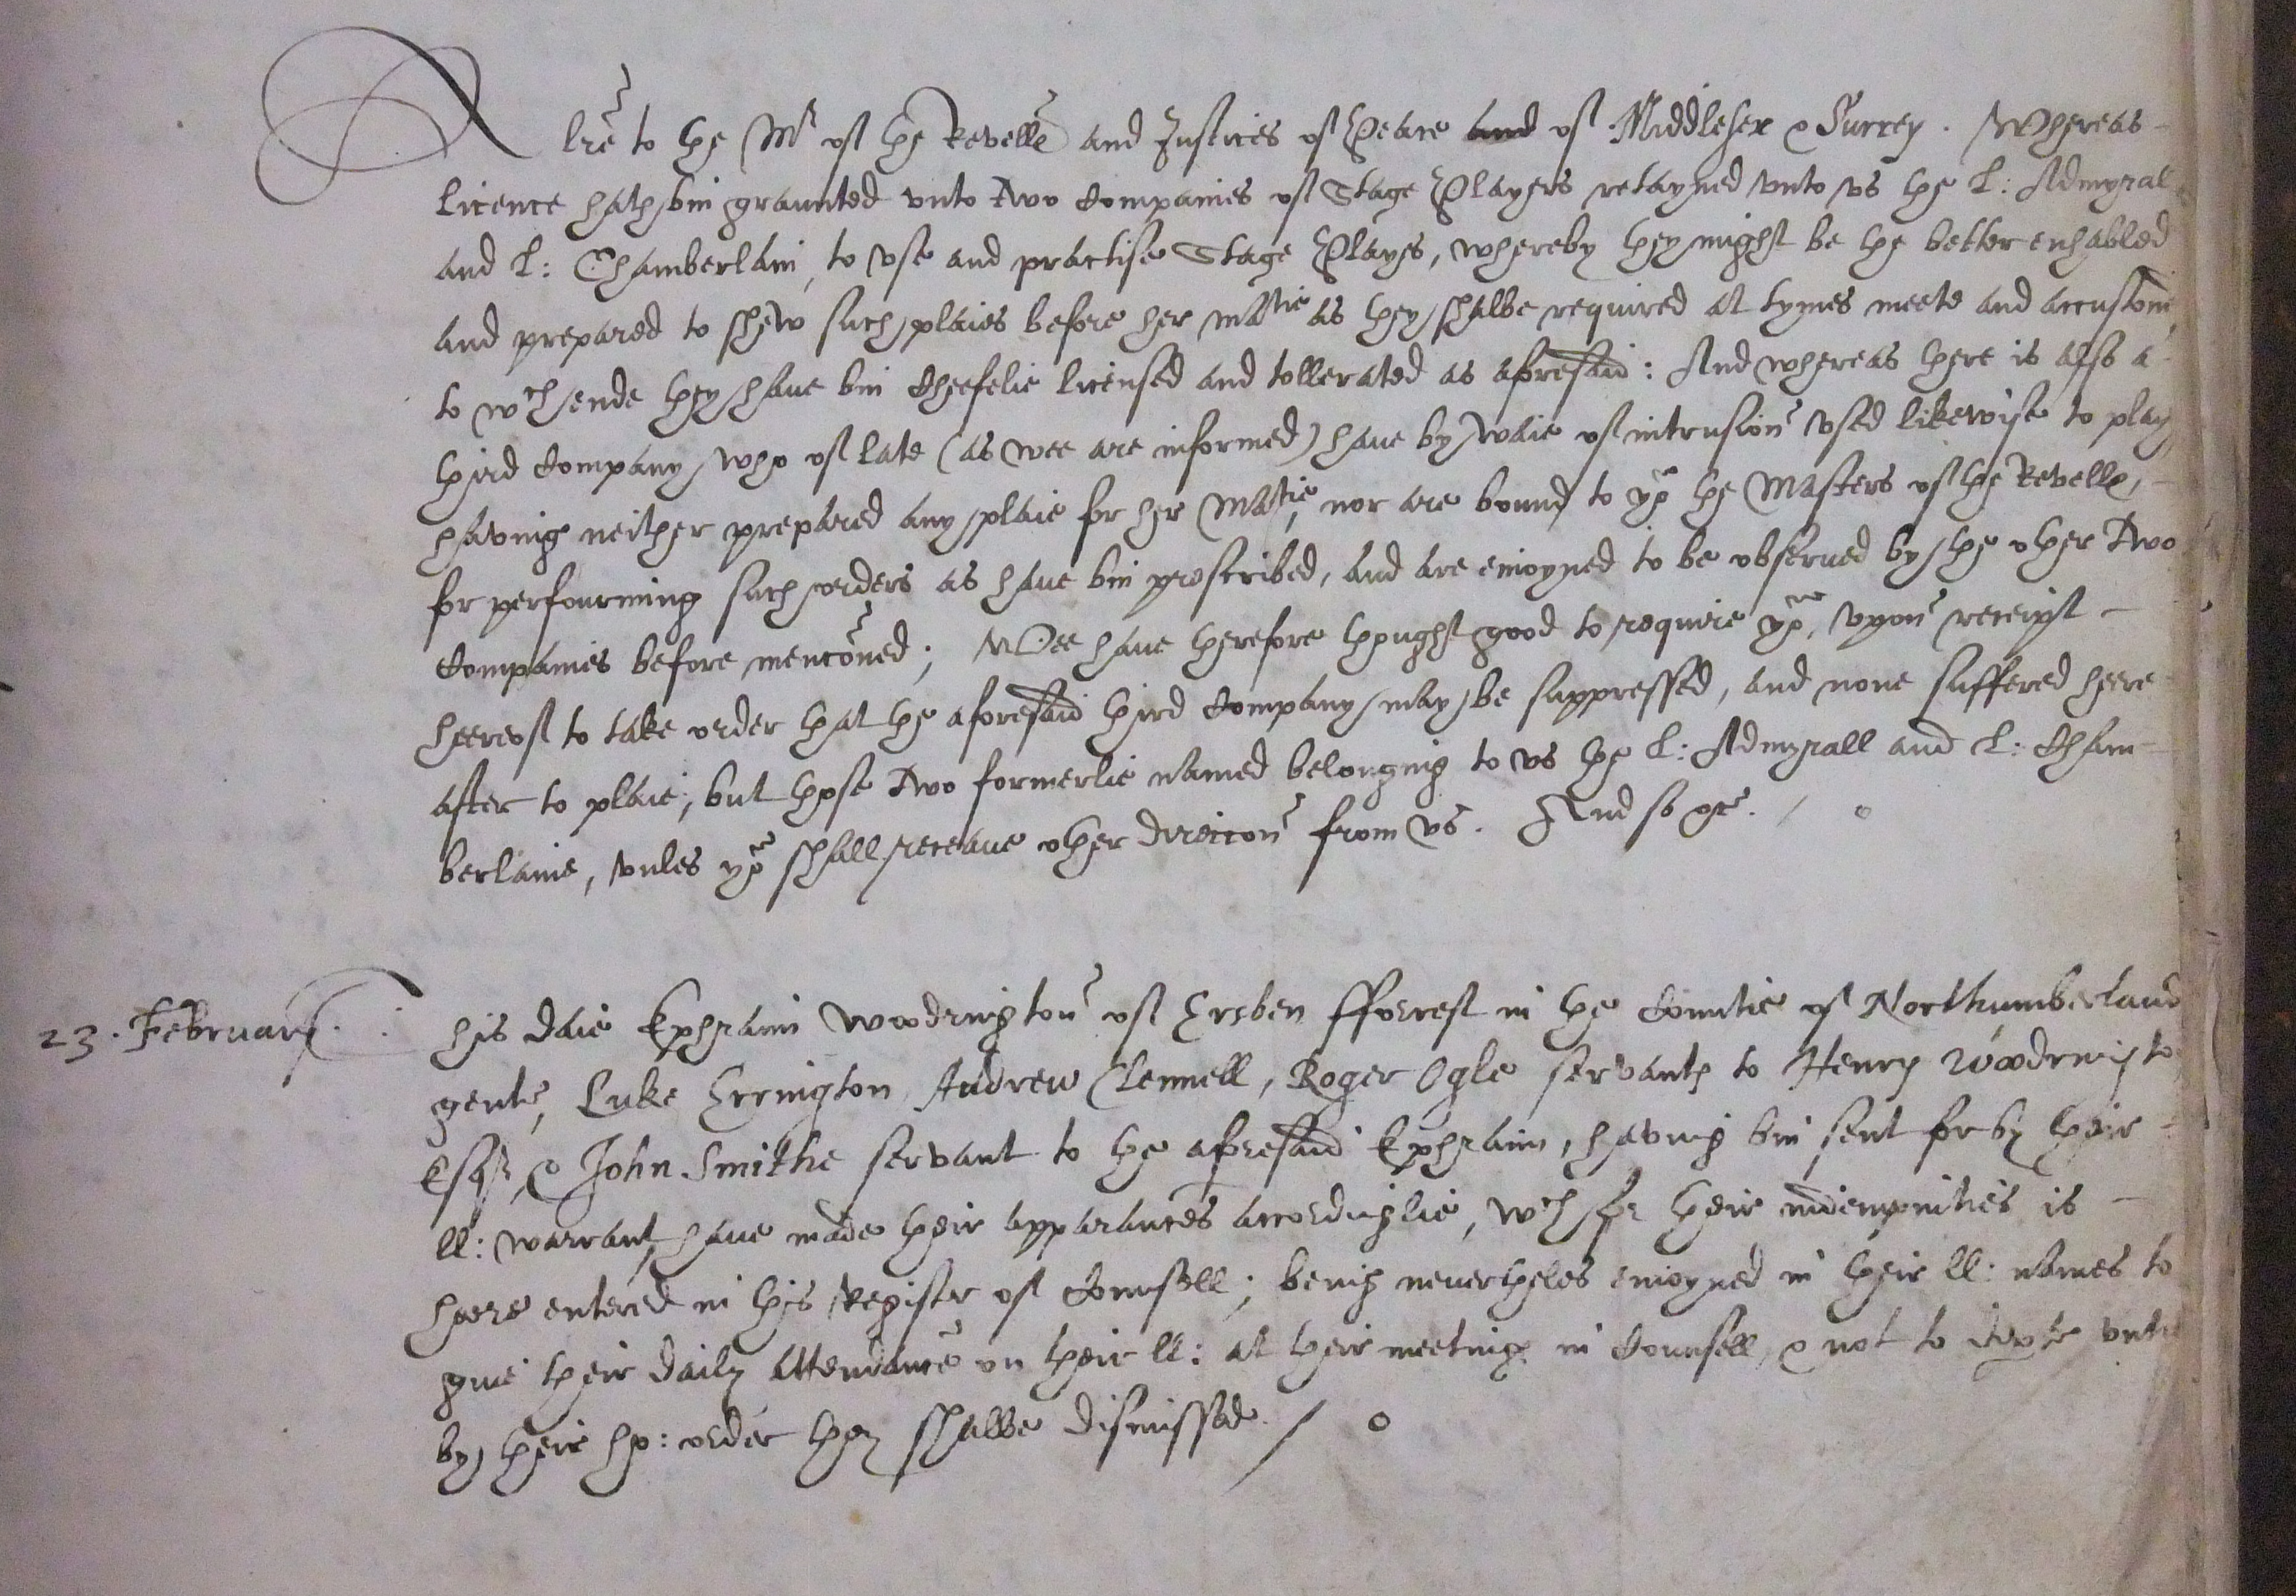 A lre to the Mr of the Revells and Justices of Peace and of Middlesex & Surrey. Whereas
licence hath bin graunted vnto two companies of Stage Players retayned vnto vs the L: Admyral
and L: Chamberlain, to vse and practise Stage Playes, whereby they might be the better enhabled
and prepared to shew such plaies before her matie as they shalbe required at tymes meete and accustomed,
to wch ende they haue bin cheefelie licensed and tollerated as aforesaid: And whereas there is also a
third company who of late (as wee are informed) haue by waie of intrusion vsed likewise to play,
having neither prepared any plaie for her Matie, nor are bound to yo the Masters of the Revells,
for perfourming such orders as have bin prescribed, and are enioyned to be obserued by the other two
companies before mencõned; Wee haue therefore thought good to require yo, vpon receipt
heereof to take order that the aforesaid third company may be suppressed, and none suffered heere
after to plaie, but those two formerlie named belonging to vs the L: Admyrall and L: Cham=
berlaine, vnles yo shall receaue other direccon from vs. And so &c.
23. February. This daie Ephraim Woodrington of Ersden fforrest in the Countie of Northumberland
gente, Luke Errington, Andrew Clennell, Roger Ogle servants to Henry Woodringto
Esqr, & John Smithe servant to the aforesaid Ephraim, having bin sent for by their
ll: warrant, haue made their apparances accordinglie, wch for their indempnities is
heere entered in this Register of Counsell; being neuertheles enioyned in their ll: names to
giue their daily attendance on their ll: at their meetings in Counsell, & not to depte vntil
by their ho: order they shalbe dismissed.